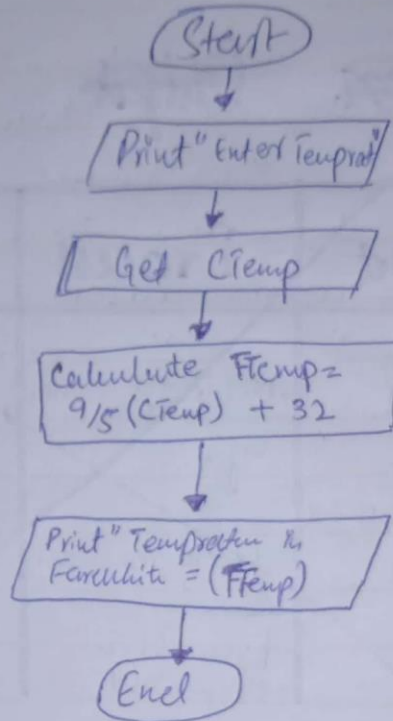 Start
Print "Enter Temprat"
Get CTemp
Calculate FTemp =
9/5 (CTemp) + 32
Print" Tempratur in
Farenhite = (FTemp)
End